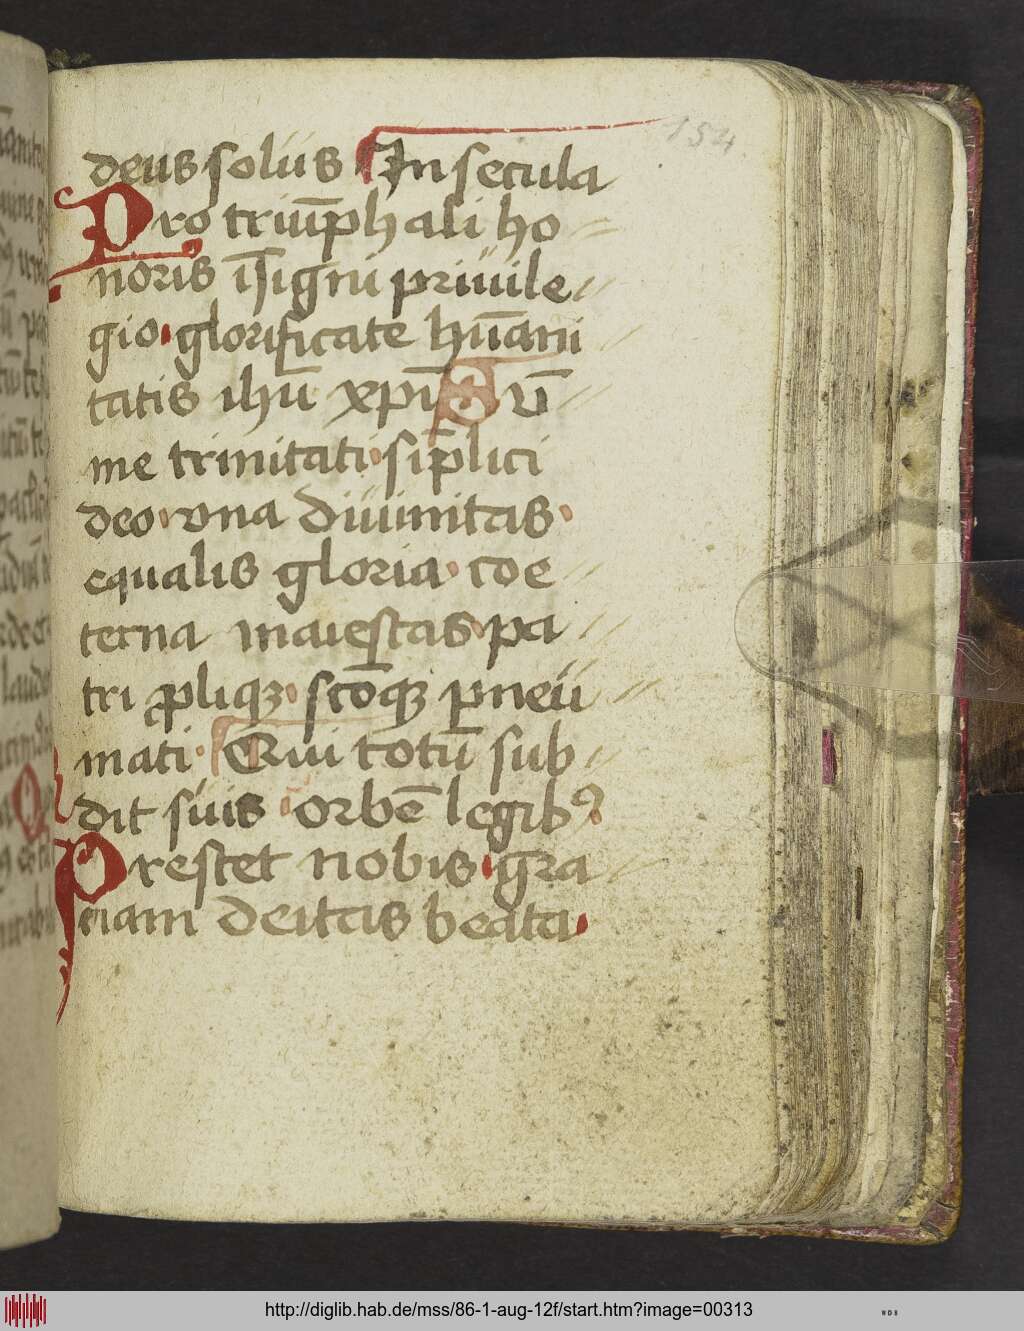 154
deus solus In secula
Pro triūphali ho
noris īsigni priuile
gio glorificate hūani
tatis ihū xp̄i S ū
me trinitati sīplici
deo vna diuinitas
equalis gloria coe
terna maiestas pa
tri ꝓliqꝫ sctōqꝫ pneu
mati Qui totū sub
dit suis orbē legibꝰ
Prestet nobis gra
ciam deitas beata
http://diglib.hab.de/mss/86-1-aug-12f/start.htm?image=00313